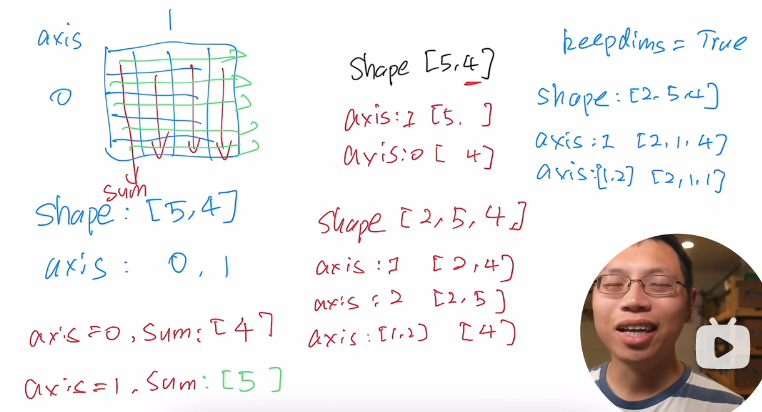 axis 1
0
sum
shape: [5,4]
axis: 0, 1
axis=0, sum: [4]
axis=1, sum: [5]
shape [5,4]
axis:1 [5, ]
axis:0 [ 4]
shape [2,5,4,]
axis:1 [2,4]
axis:2 [2,5]
axis:[1,2] [4]
keepdims=True
shape: [2,5,4]
axis:1 [2,1,4]
axis:[1,2] [2,1,1]